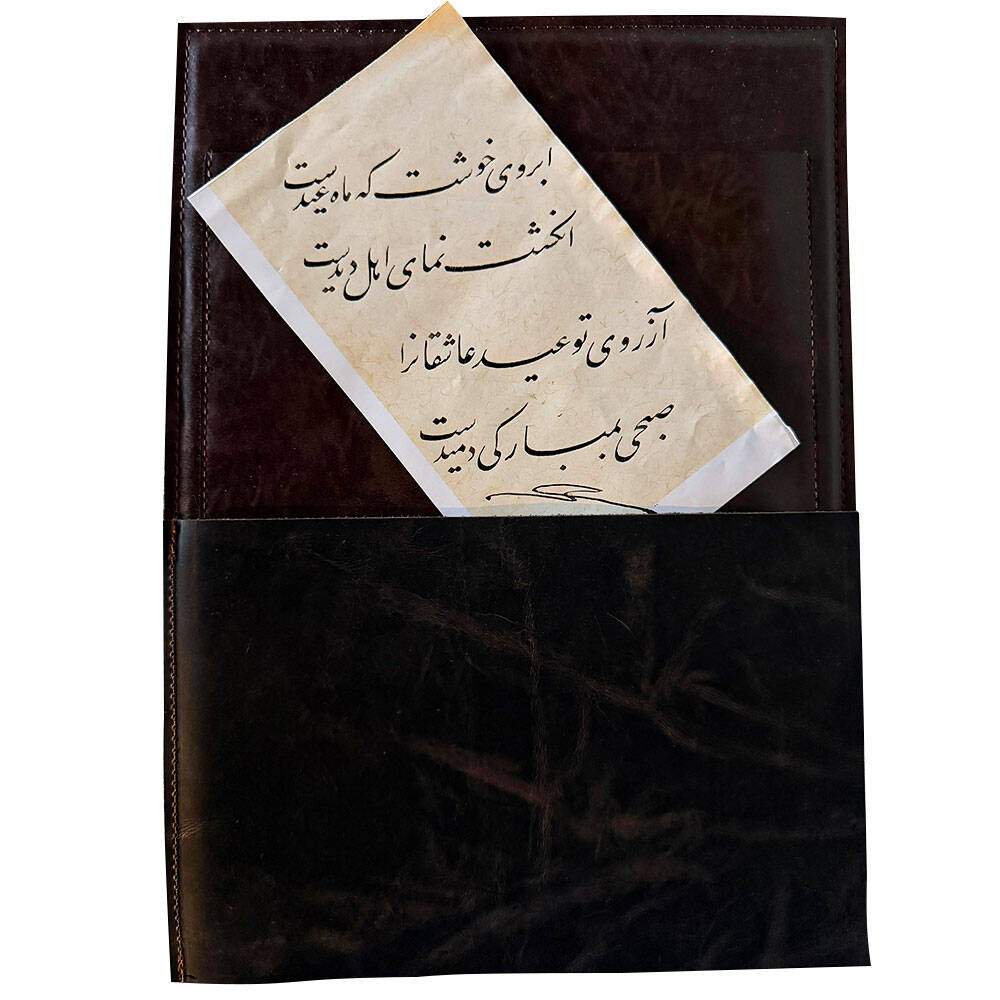 ابروی خوشت که ماه عیدست
انگشت نمای اهل دیدست
از روی تو عید عاشقانرا
صبحی بمبارکی دمیدست